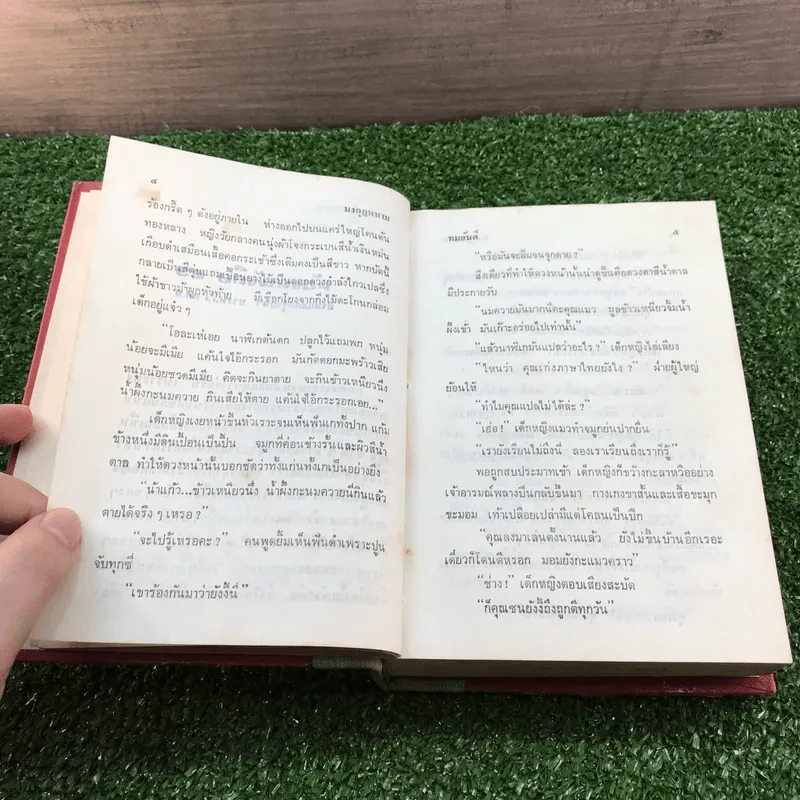 ๔ มงกุฎหนาม
ร้องกรี๊ด ๆ ดังอยู่ภายใน ห่างออกไปบนแคร่ใหญ่โคนต้น
ทองหลาง หญิงวัยกลางคนนุ่งผ้าโจงกระเบนสีน้ำเงินหม่น
เกือบดำเสมือนเสื้อคอกระเช้าซึ่งเดิมคงเป็นสีขาว หากบัดนี้
กลายเป็นสีตุ่นแถมเปื้อนยางไม้เป็นดอกดวงกำลังไกวเปลซึ่ง
ใช้ผ้าขาวม้าผูกหัวท้าย มีเชือกโยงจากกิ่งไม้ตะโกนกล่อม
เด็กอยู่แจ้ว ๆ
“โอละเห่เอย นาพิเกต้นตก ปลูกไว้แถมพก หนุ่ม
น้อยจะมีเมีย แค้นใจไอ้กระรอก มันกัดดอกมะพร้าวเสีย
หนุ่มน้อยชวดมีเมีย คิดจะกินยาตาย จะกินข้าวเหนียวนึ่ง
น้ำผึ้งกะนมควาย กินเสียให้ตาย แค้นใจไอ้กระรอกเอย...”
เด็กหญิงเงยหน้าขึ้นหัวเราะจนเห็นฟันเกทั้งปาก แก้ม
ข้างหนึ่งมีดินเปื้อนเป็นปื้น จมูกที่ค่อนข้างรั้นและผิวสีน้ำ
ตาล ทำให้ดวงหน้านั้นบอกชัดว่าทั้งแก่นทั้งเกเป็นอย่างยิ่ง
“น้าแก้ว...ข้าวเหนียวนึ่ง น้ำผึ้งกะนมควายนี่กินแล้ว
ตายได้จริงๆ เหรอ?”
“จะไปรู้เหรอคะ?” คนพูดยิ้มเห็นฟันดำเพราะปูน
จับทุกซี่
“เขาร้องกันมาว่ายังงี้นี่”
ทมยันตี ๕
“หรือมันจะลืมจนจุกตาย?”
สิ่งเดียวที่ทำให้ดวงหน้านั้นน่าดูขึ้นคือดวงตาสีน้ำตาล
มีประกายวับ
“นมความมันมากน็คะคุณแมว มูลข้าวเหนียวจิ้มน้ำ
ผึ้งเข้า มันเก๊าะอร่อยไปเท่านั้น”
“แล้วนาพิเกมันแปลว่าอะไร?” เด็กหญิงไล่เลียง
“ไหนว่า คุณเก่งภาษาไทยยังไง?” ฝ่ายผู้ใหญ่
ย้อนให้
“ทำไมคุณแปลไม่ได้ล่ะ?”
“เฮ่อ!” เด็กหญิงแมวทำจมูกย่นปากยื่น
“เรายังเรียนไม่ถึงนี่ ลองเราเรียนถึงเราก็รู้”
พอถูกสบประมาทเข้า เด็กหญิงก็ขว้างกะลาหวืออย่าง
เจ้าอารมณ์พลางปีนกลับขึ้นมา กางเกงขาสั้นและเสื้อขะมุก
ขะมอม เท้าเปลือยเปล่ามีแต่โคลนเป็นปึก
“คุณลงมาเล่นตั้งนานแล้ว ยังไม่ขึ้นบ้านอีกเรอะ
เดี๋ยวก็โดนตีหรอก มอมยังกะแมวคราว”
“ช่าง!” เด็กหญิงตอบเสียงสะบัด
“ก็คุณซนยังงี้ถึงถูกตีทุกวัน”